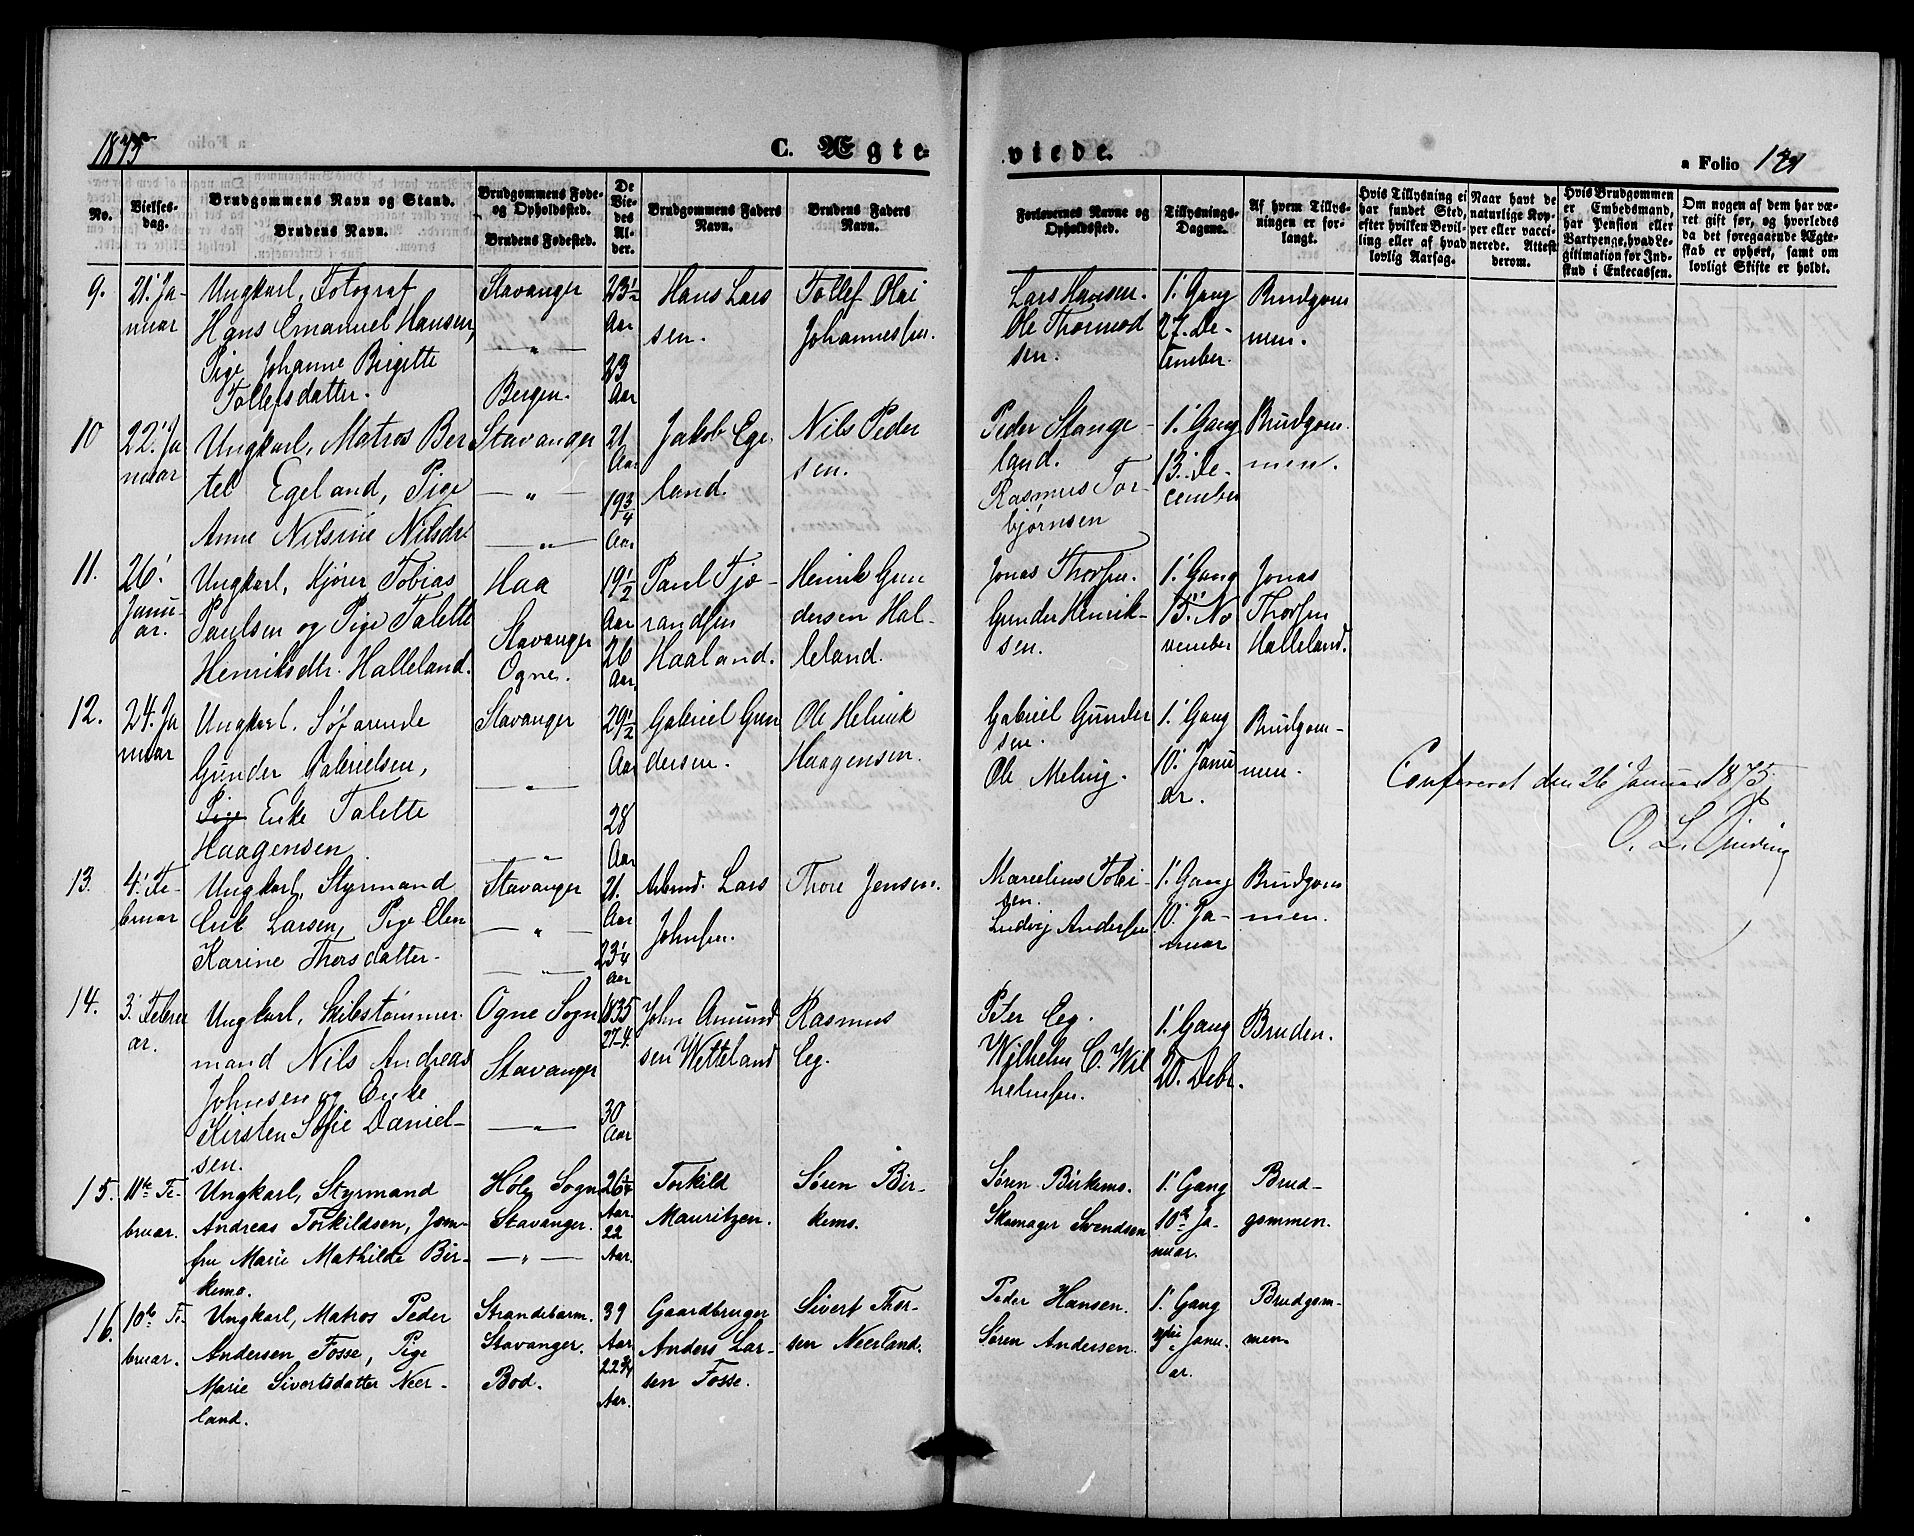 1875
C. Ægte-
viede.
a Folio 121
No.
Vielses-
dag.
Brudgommens Navn og Stand.
Brudens Navn.
Brudgommens Føde-
og Opholdssted.
Brudens Fødested.
De
Vie-
des
Al-
der.
Brudgommens Faders
Navn.
Brudens Faders
Navn.
Forlovernes Navne og
Opholdssted.
Tillysnings-
Dagene.
Af hvem Tillys-
ningen er for-
langt.
Hvis Tillysning ei
har fundet Sted,
efter hvilken Bevil-
ling eller af hvad
lovlig Aarsag.
Naar havt de
naturlige Kop-
per eller vacci-
nerede. Attest
derom.
Hvis Brudgommen
er Embedsmand,
har Pension eller
Vartpenge, hvad Le-
gitimation for Ind-
skud i Enkecassen.
Om nogen af dem har væ-
ret gift før, og hvorledes
da det foregaaende Ægte-
skab er ophørt, samt om
lovligt Skifte er holdt.
9.
21. Ja-
nuar
Ungkarl, Fotograf
Hans Emanuel Hansen,
Pige Johanne Birgitte
Tollefsdatter.
Stavanger
— " —
Bergen.
23½
Aar
23
Aar
Hans Lars
sen.
Tollef Olai
Johannessen.
Lars Hansen.
Ole Thormod
sen.
1. Gang
27. De-
cember.
Brudgom
men.
10
22. Ja
nuar
Ungkarl, Matros Ber
tel Egeland, Pige
Anne Nilsine Nilsdr.
Stavanger
— " —
— " —
21
Aar
19¾
Aar
Jakob Ege
land.
Nils Peder
sen.
Peder Stange-
land.
Rasmus Tor-
bjørnsen
1. Gang
13. De-
cember
Brudgom
men.
11.
26.
Janu-
ar.
Ungkarl, Kjører Tobias
Paulsen og Pige Talette
Henriksdtr. Halleland.
Haa
Stavanger
Ogne.
19½
Aar
26
Aar
Paul Fjo-
randsen
Haaland.
Henrik Gun
dersen Hal-
leland.
Jonas Thorsen.
Gunder Henrik-
sen.
1. Gang
15. No
vember
Jonas
Thorsen
Halleland.
12.
24. Ja
nuar
Ungkarl. Søfarende
Gunder Gabrielsen,
Pige Enke Talette
Haagensen
Stavanger
— " —
— " —
29½
Aar
28
Aar
Gabriel Gun
dersen.
Ole Helmik
Haagensen.
Gabriel Gunder
sen.
Ole Meling.
1. Gang
10. Janu
ar.
Brudgom-
men.
Confereret den 26 Januar 1875
13.
4. Fe-
bruar
Ungkarl, Styrmand
Erik Larsen, Pige Elen
Karine Thorsdatter-
Stavanger
— " —
— " —
21.
Aar
23¼
Aar
Arbmd. Lars
Johnsen.
Thore Jensen.
Marselius Tobi-
sen.
Ludvig Andersen
1. Gang
10. Ja-
nuar
Brudgom
men.
14.
3. Febru
ar.
Ungkarl, Skibstømmer
mand Nils Andreas
Johnsen og Enke
Kirsten Sofie Daniel-
sen.
Ogne Sogn
Stavanger
— " —
1835
27-4.
30
Aar
John Amund
sen Wetteland
Rasmus
Eeg.
Peter Eeg.
Wilhelm C. Wil
helmsen.
1. Gang
20. Debr.
Bruden.
15.
11te Fe-
bruar.
Ungkarl, Styrmand
Andreas Torkildsen, Jom-
fru Marie Mathilde Bir-
kemo.
Høle Sogn
Stavanger.
— " —
26¼
Aar.
22
Aar.
Torkild
Mauritzen.
Søren Bir-
kemo.
Søren Birkemo.
Skomager Svendsen
1. Gang
10de Ja-
nuar.
Brud-
gommen.
16.
10de Fe-
bruar.
Ungkarl, Matros Peder
Andersen Fosse, Pige
Marie Sivertsdatter Neer-
land.
Strandebarm.
Stavanger.
Bod.
39
Aar
22¾
Aar.
Gaardbruger
Anders Lar-
sen Fosse.
Sivert Thor-
sen Neerland.
Peder Hansen.
Søren Andersen.
1. Gang
3die Janu-
ar.
Brudgom-
men